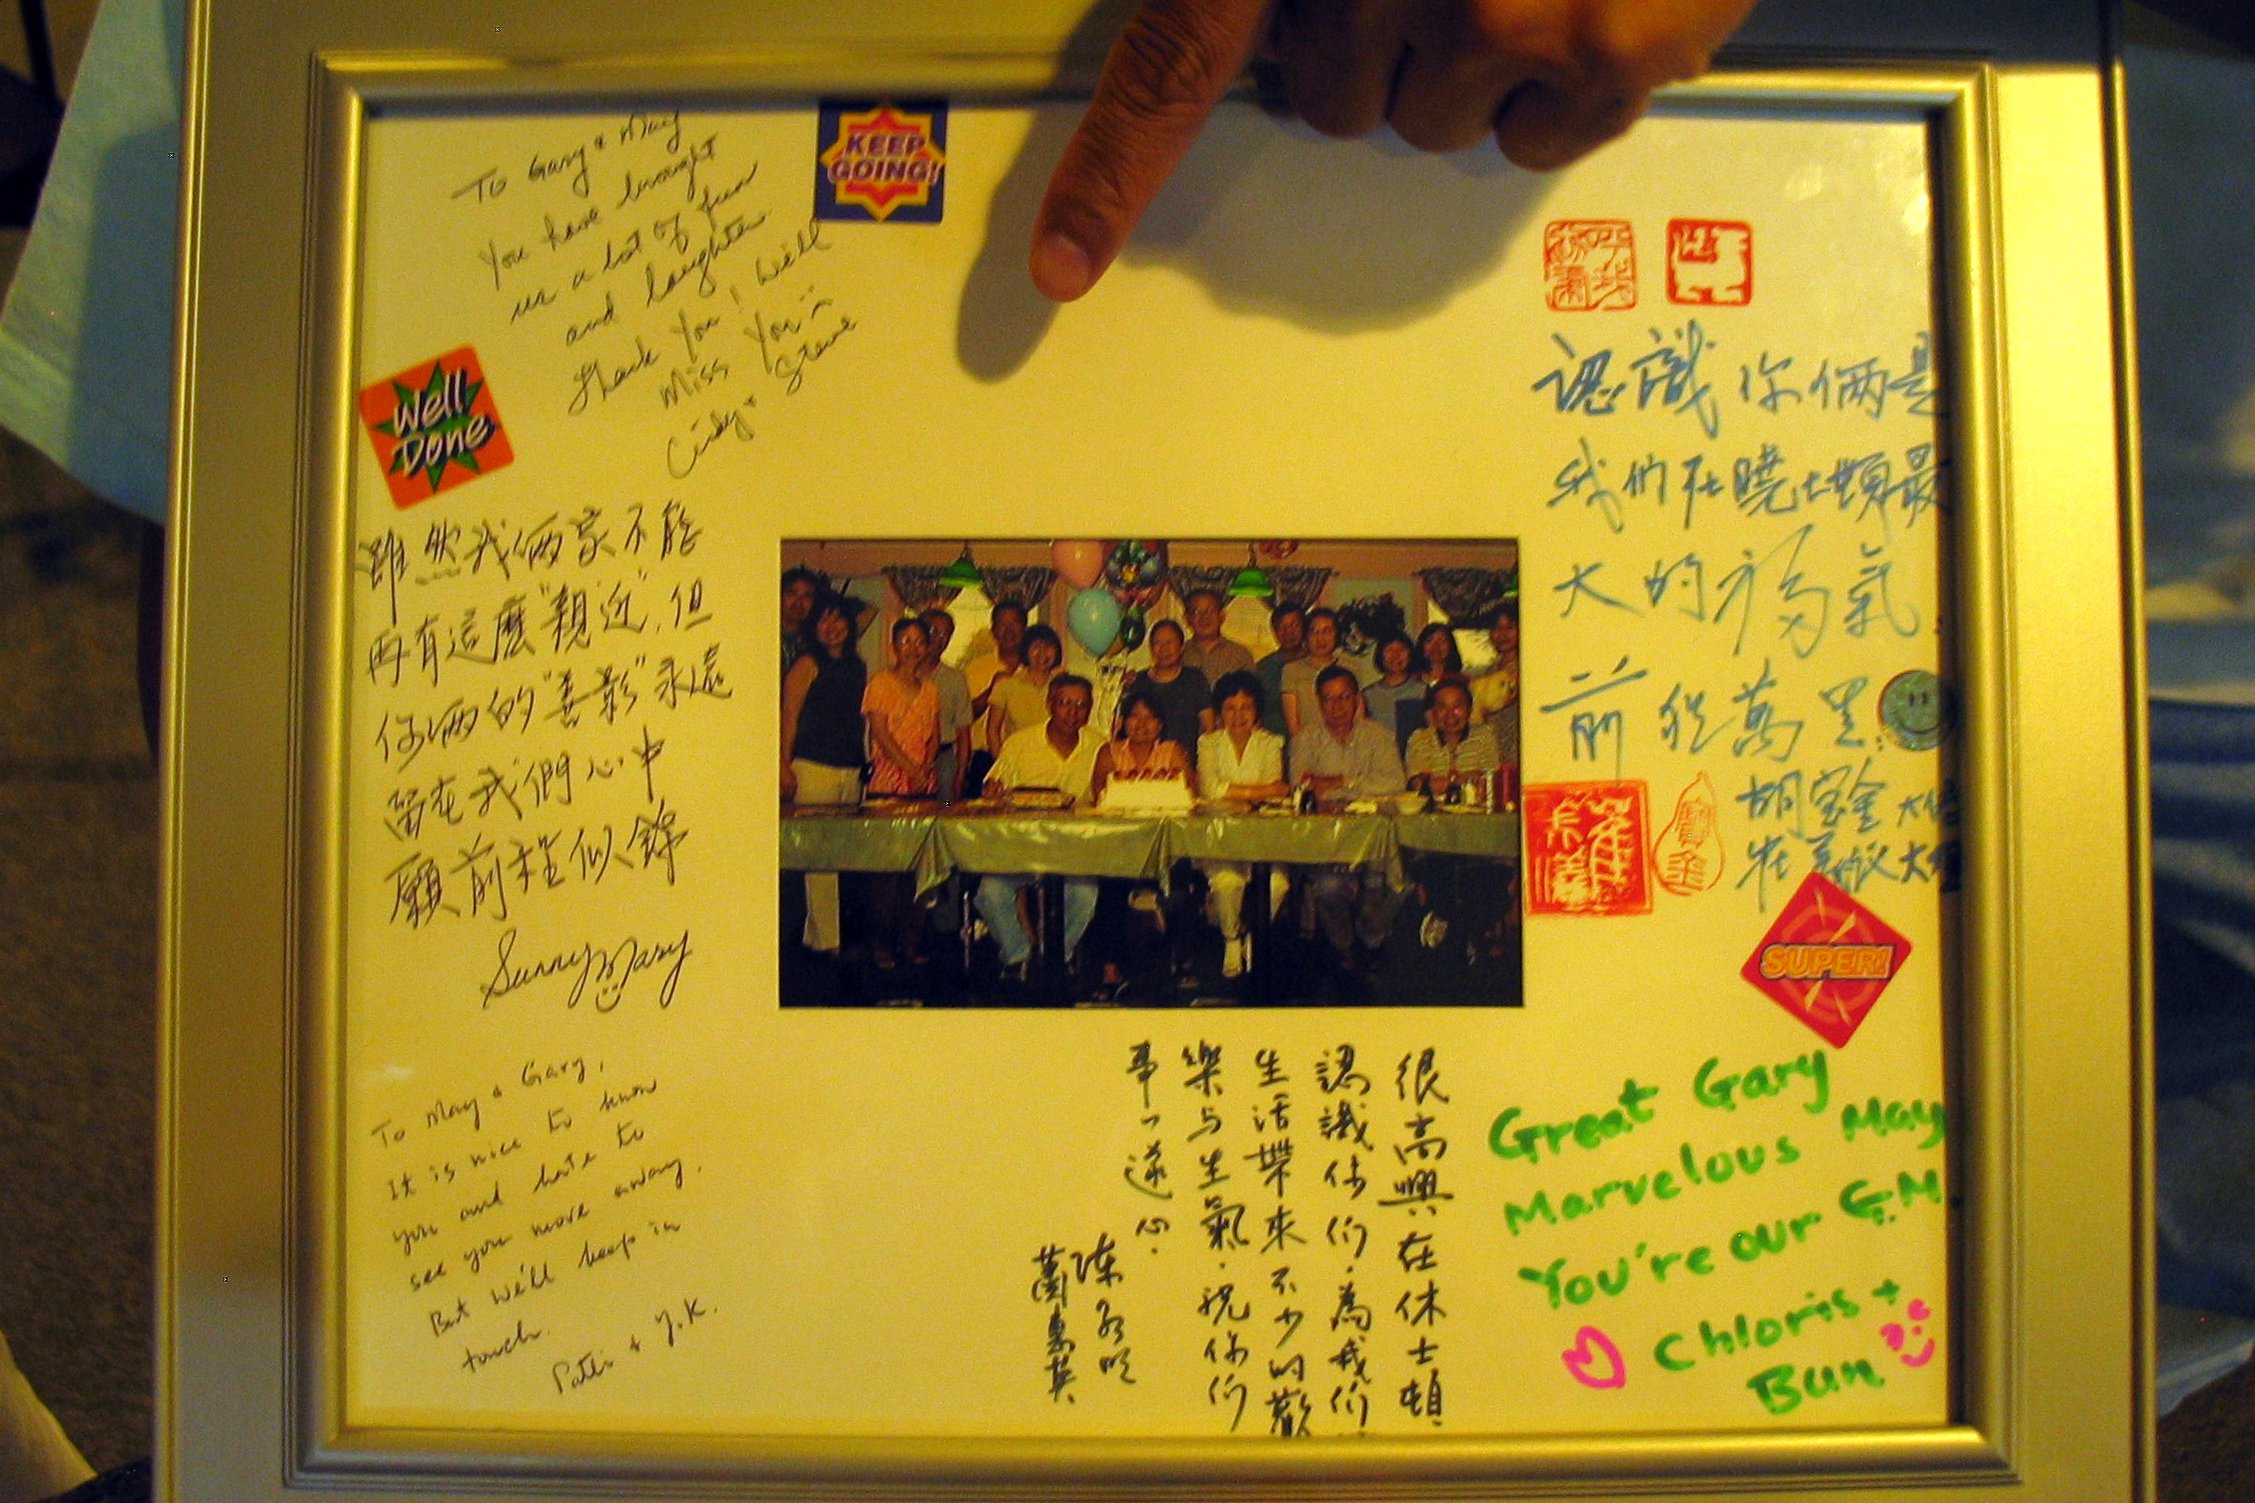 To Gary & May
You have brought
us a lot of fun
and laughter.
Thank You! Will
Miss You
Cindy & Steve
KEEP
GOING!
Well
Done
雖然我倆家不能
再有這麼"親近",但
你倆的"善影"永遠
留在我們心中
願前程似錦
Sunny Mary
To May & Gary,
It is nice to know
you and hate to
see you move away.
But we'll keep in
touch.
Patti + Y.K.
認識你倆是
我們在曉士頓最
大的福氣.
前程萬里:
胡寶金
SUPER!
很高興在休士頓
認識你們.為我們
生活帶來不少的歡
樂与生氣.祝你們
事事遂心.
Great Gary
Marvelous May
You're our G.M.
Chloris +
Bun